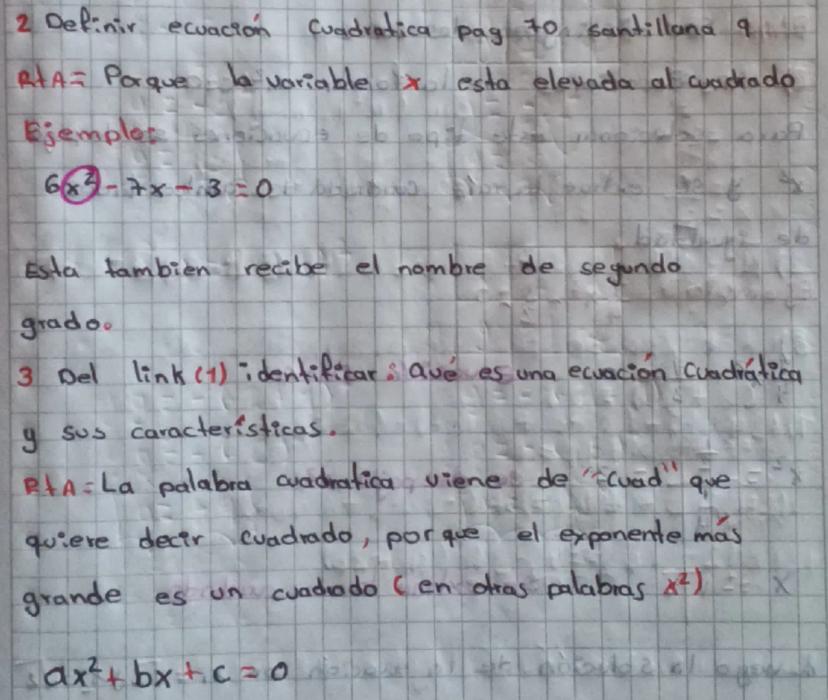 2 Definir ecuación cuadratica pag 70 santillana 9
RtA= Porque la variable x esta elevada al cuadrado
Ejemplo:
6x² - 7x - 3 = 0
Esta tambien recibe el nombre de segundo
grado.
3 Del link (1) identificar: Qué es una ecuación cuadrática
y sus características.
RtA= La palabra cuadratica viene de "cuad" que
quiere decir cuadrado, porque el exponente más
grande es un cuadrado (en otras palabras x²)
ax² + bx + c = 0